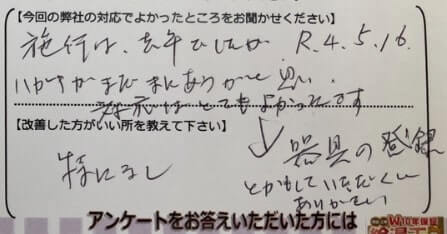 【今回の弊社の対応でよかったところをお聞かせください】
施行は、去年でしたが R.4.5.16.
ハガキがまだまにあうかと思い
対応はとてもよかったです
【改善した方がいい所を教えて下さい】
特になし
器具の登録
とかもしていただくと
ありがたい
アンケートをお答えいただいた方には
W10年保証